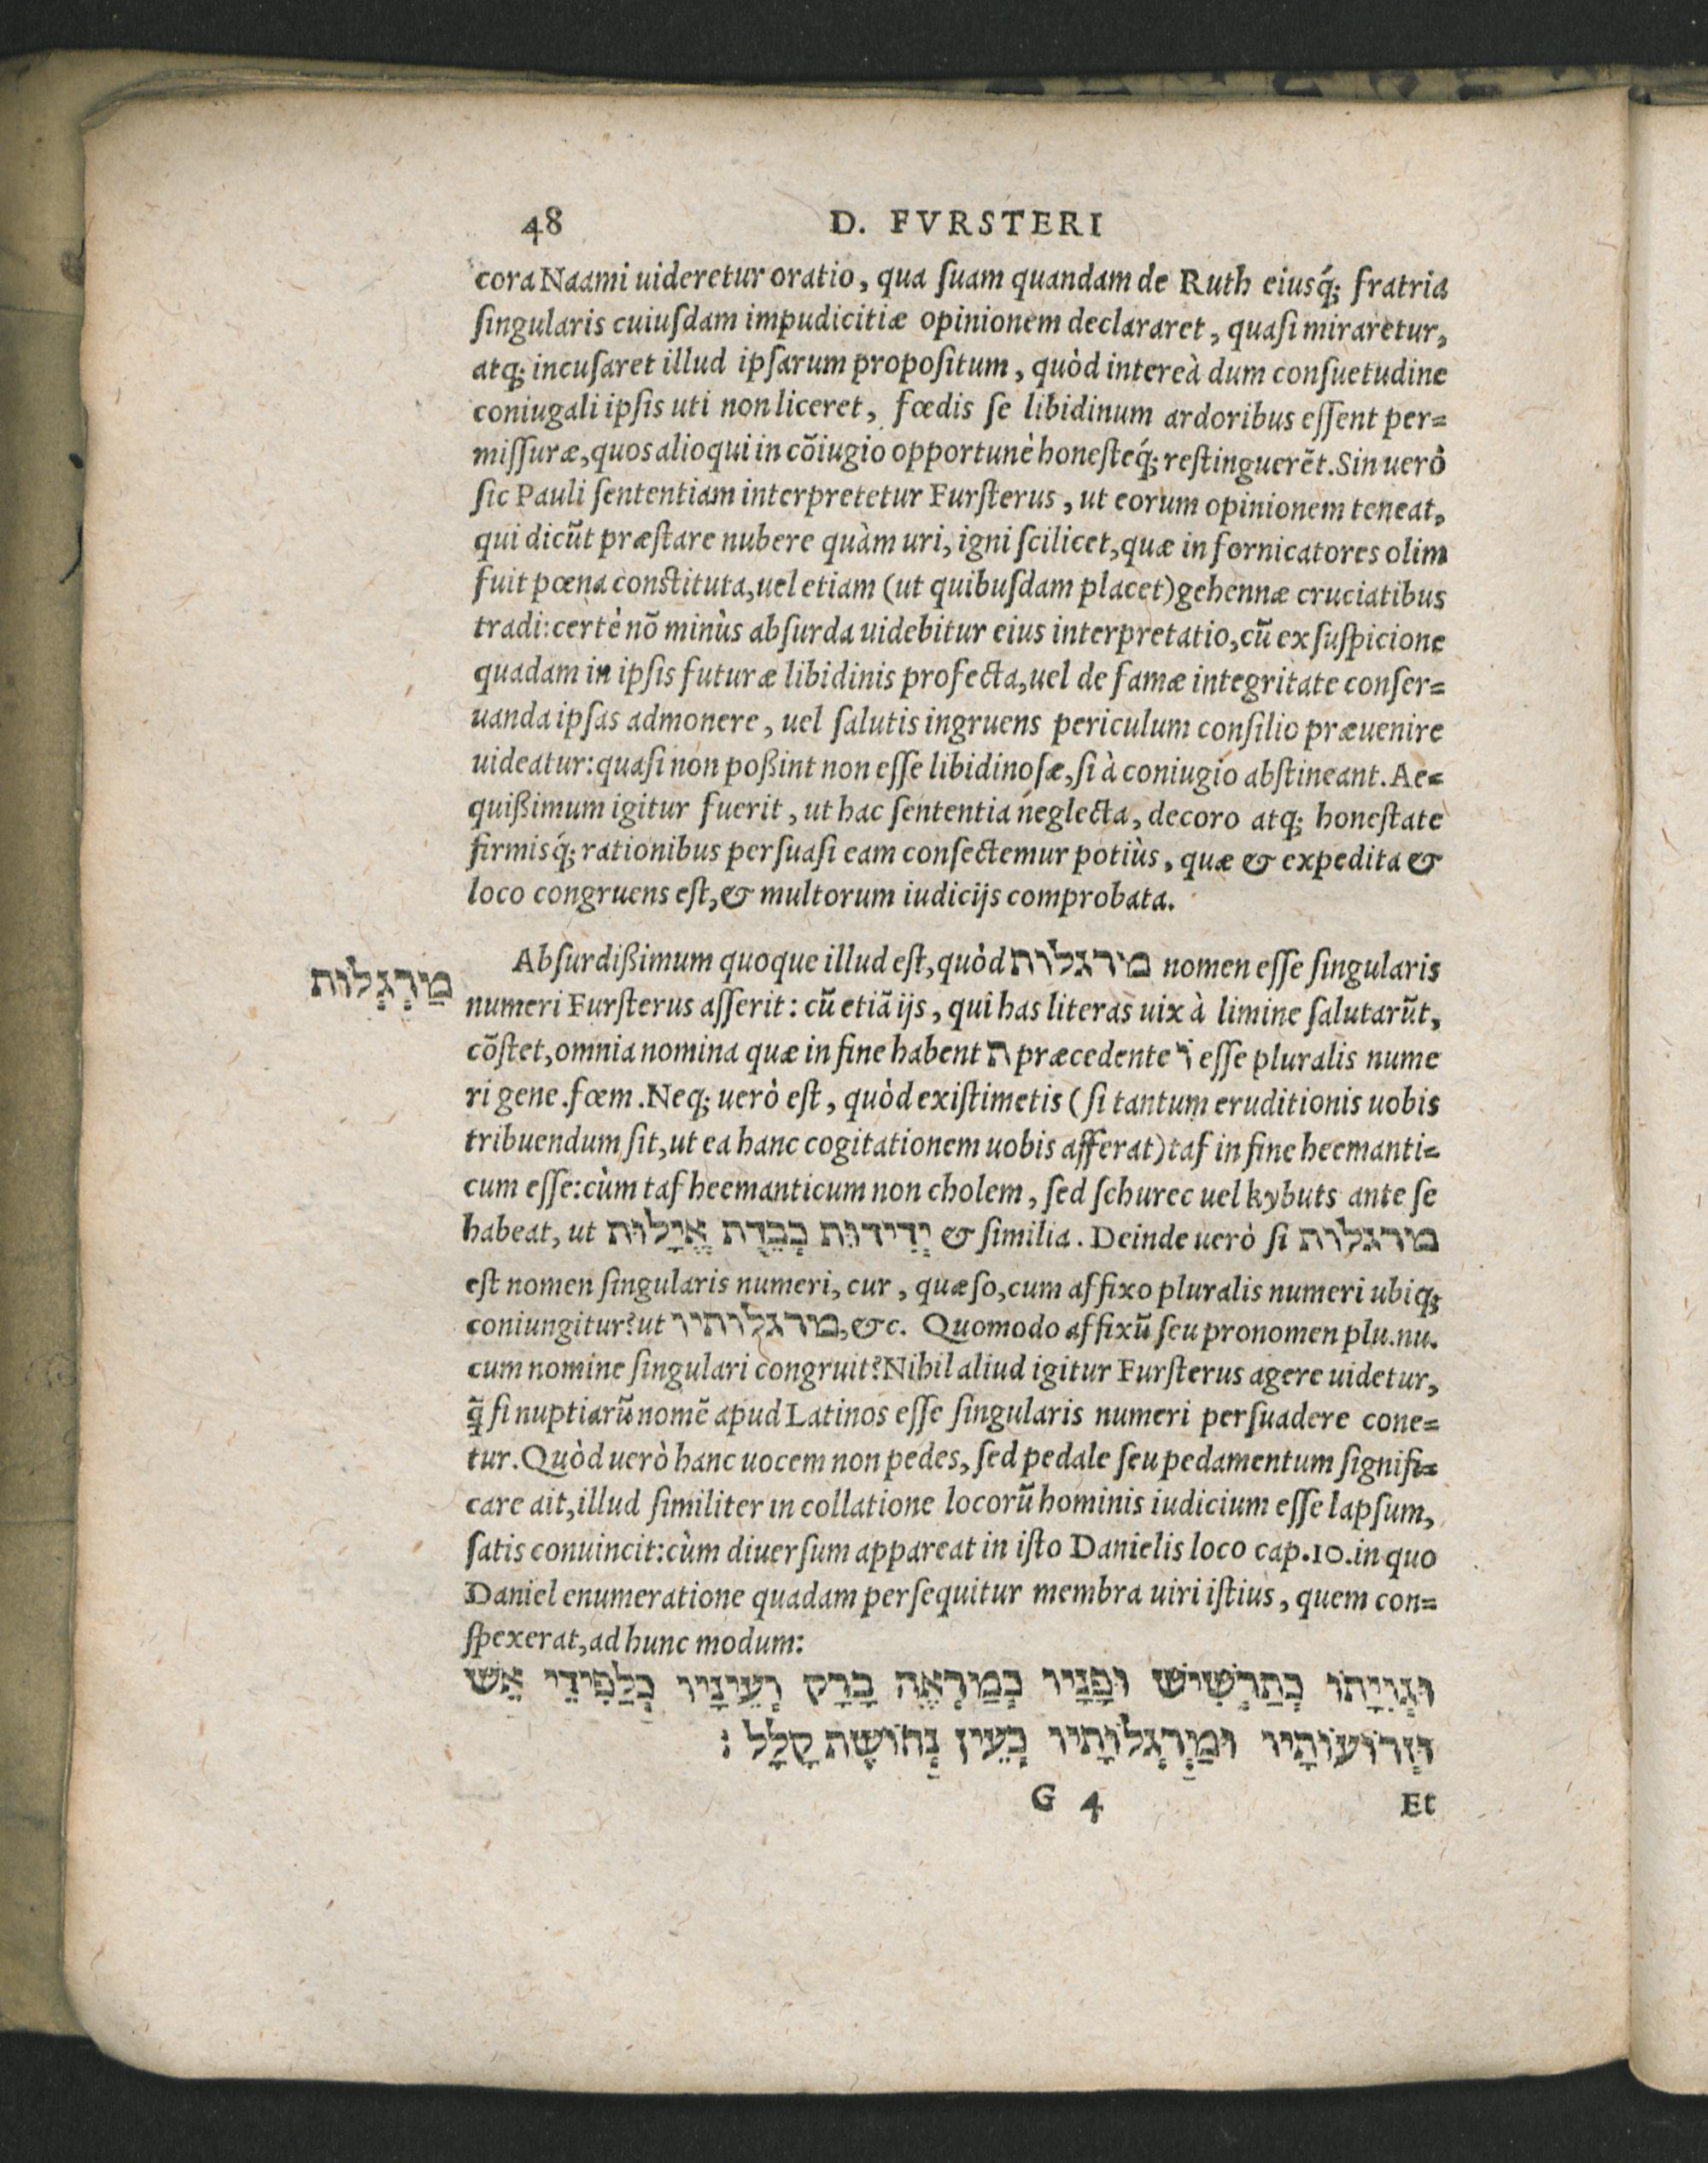 48 D. FVRSTERI
cora Naami uideretur oratio, qua ſuam quandam de Ruth eiusq́; fratria
ſingularis cuiuſdam impudicitiæ opinionem declararet, quaſi miraretur,
atq; incuſaret illud ipſarum propoſitum, quòd intereà dum conſuetudine
coniugali ipſis uti non liceret, fœdis ſe libidinum ardoribus eſſent per=
miſſuræ, quos alioqui in cõiugio opportunè honeſteq́; reſtinguerẽt. Sin uerò
ſic Pauli ſententiam interpretetur Furſterus, ut eorum opinionem teneat,
qui dicũt præſtare nubere quàm uri, igni ſcilicet, quæ in fornicatores olim
fuit pœna conſtituta, uel etiam (ut quibuſdam placet) gehennæ cruciatibus
tradi: certè nõ minùs abſurda uidebitur eius interpretatio, cũ ex ſuſpicione
quadam in ipſis futuræ libidinis profecta, uel de famæ integritate conſer=
uanda ipſas admonere, uel ſalutis ingruens periculum conſilio præuenire
uideatur: quaſi non poßint non eſſe libidinoſæ, ſi à coniugio abſtineant. Ae=
quißimum igitur fuerit, ut hac ſententia neglecta, decoro atq; honeſtate
firmisq́; rationibus perſuaſi eam conſectemur potiùs, quæ & expedita &
loco congruens eſt, & multorum iudicijs comprobata.
מַרְגְּלוֹת
Abſurdißimum quoque illud eſt, quòd מירגלות nomen eſſe ſingularis
numeri Furſterus aſſerit: cũ etiã ijs, qui has literas uix à limine ſalutarũt,
cõſtet, omnia nomina quæ in fine habent ת præcedente וֹ eſſe pluralis nume
ri gene. fœm. Neq; uerò eſt, quòd exiſtimetis (ſi tantum eruditionis uobis
tribuendum ſit, ut ea hanc cogitationem uobis afferat) taf in fine heemanti=
cum eſſe: cùm taf heemanticum non cholem, ſed ſchurec uel kybuts ante ſe
habeat, ut יְדִידוּת כְּבֵדֻת אֱיָלוּת & ſimilia. Deinde uerò ſi מרגלות
eſt nomen ſingularis numeri, cur, quæſo, cum affixo pluralis numeri ubiq;
coniungitur? ut מרגלותיו, &c. Quomodo affixũ ſeu pronomen plu. nu.
cum nomine ſingulari congruit? Nihil aliud igitur Furſterus agere uidetur,
q̃ ſi nuptiarũ nomẽ apud Latinos eſſe ſingularis numeri perſuadere cone=
tur. Quòd uerò hanc uocem non pedes, ſed pedale ſeu pedamentum ſignifi=
care ait, illud ſimiliter in collatione locorũ hominis iudicium eſſe lapſum,
ſatis conuincit: cùm diuerſum appareat in iſto Danielis loco cap. 10. in quo
Daniel enumeratione quadam perſequitur membra uiri iſtius, quem con=
ſpexerat, ad hunc modum:
וּגְוִיָתוֹ כְתַרְשִׁישׁ וּפָנָיו כְּמַרְאֶה בָרָק וְעֵינָיו כְּלַפִּידֵי אֵשׁ
וּזְרוֹעוֹתָיו וּמַרְגְלוֹתָיו כְּעֵין נְחוֹשֶׁת קָלָל :
G 4 Et